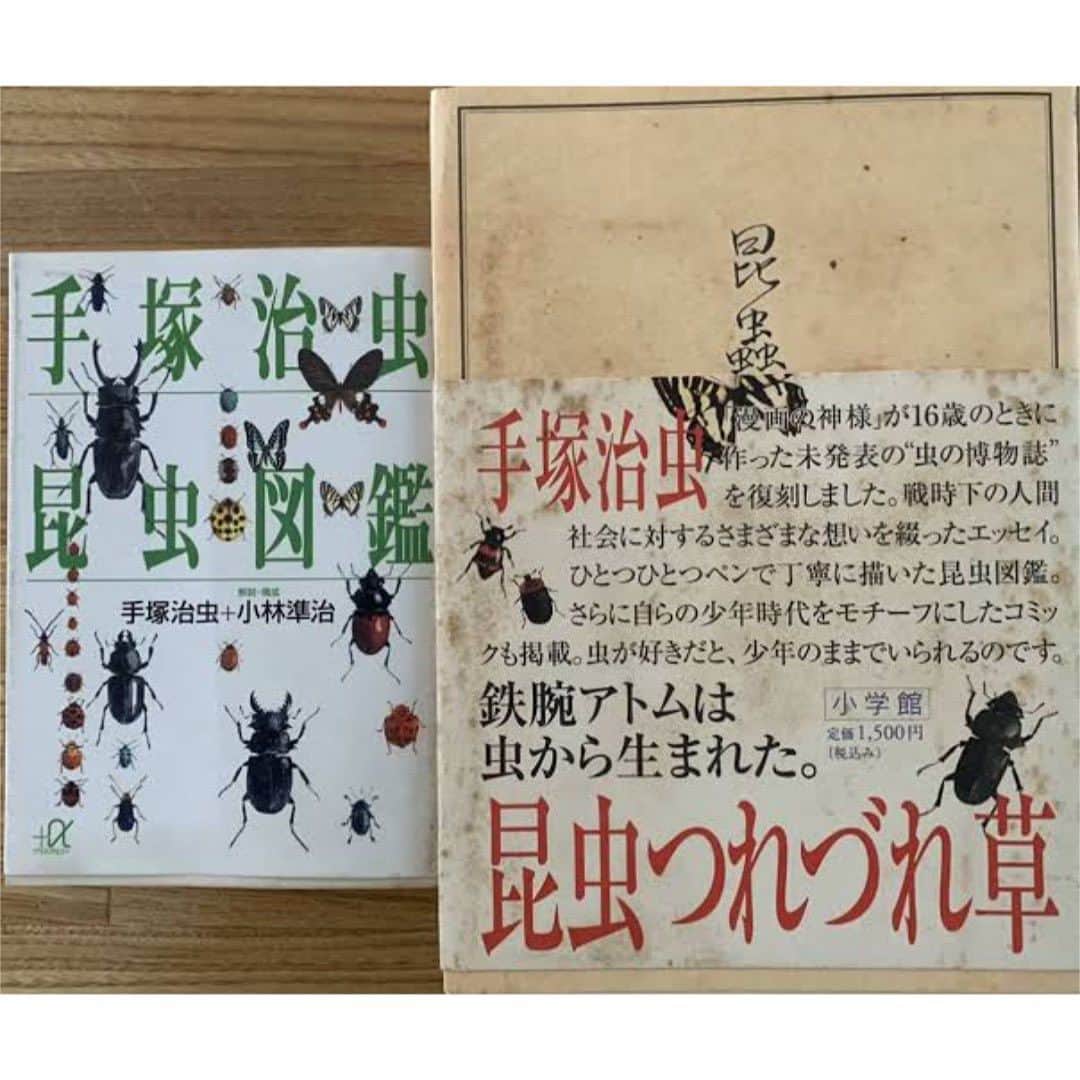 手塚治虫
昆虫図鑑
解説・構成
手塚治虫+小林準治
+α
昆蟲
手塚治虫
「漫画の神様」が16歳のときに
作った未発表の“虫の博物誌”
を復刻しました。戦時下の人間
社会に対するさまざまな想いを綴ったエッセイ。
ひとつひとつペンで丁寧に描いた昆虫図鑑。
さらに自らの少年時代をモチーフにしたコミッ
クも掲載。虫が好きだと、少年のままでいられるのです。
鉄腕アトムは
虫から生まれた。
小学館
定価1,500円
(税込み)
昆虫つれづれ草